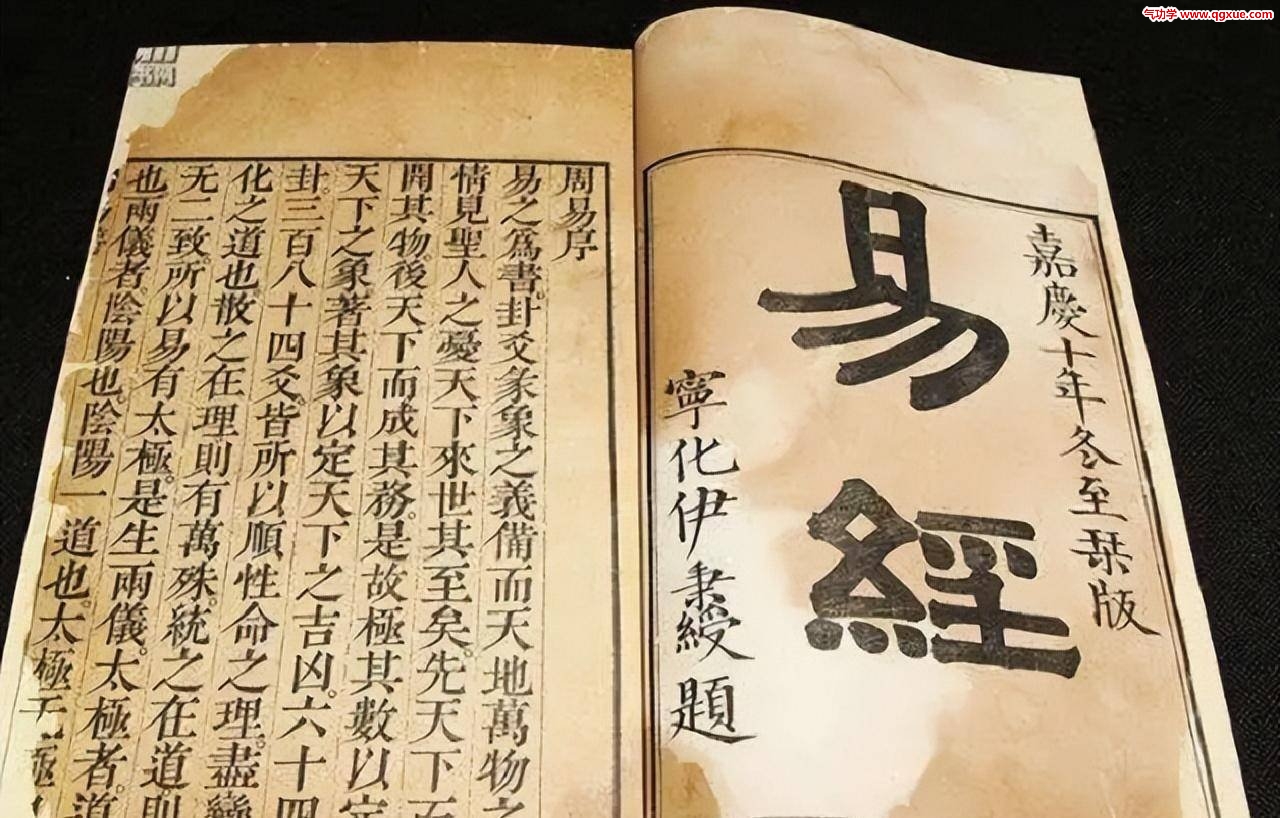 气功学 www.qgxue.com
嘉慶十年冬至栞版
易經
寧化伊秉綬題
周易序
易之爲書。卦爻彖象之義備而天地萬物之
情見聖人之憂天下來世其至矣。先天下而
開其物。後天下而成其務。是故極其數以定
天下之象著其象以定天下之吉凶。六十四
卦。三百八十四爻。皆所以順性命之理。盡變
化之道也散之在理則有萬殊。統之在道。則
无二致所以易有太極。是生兩儀。太極者。道
也兩儀者。陰陽也。陰陽一道也。太極无極